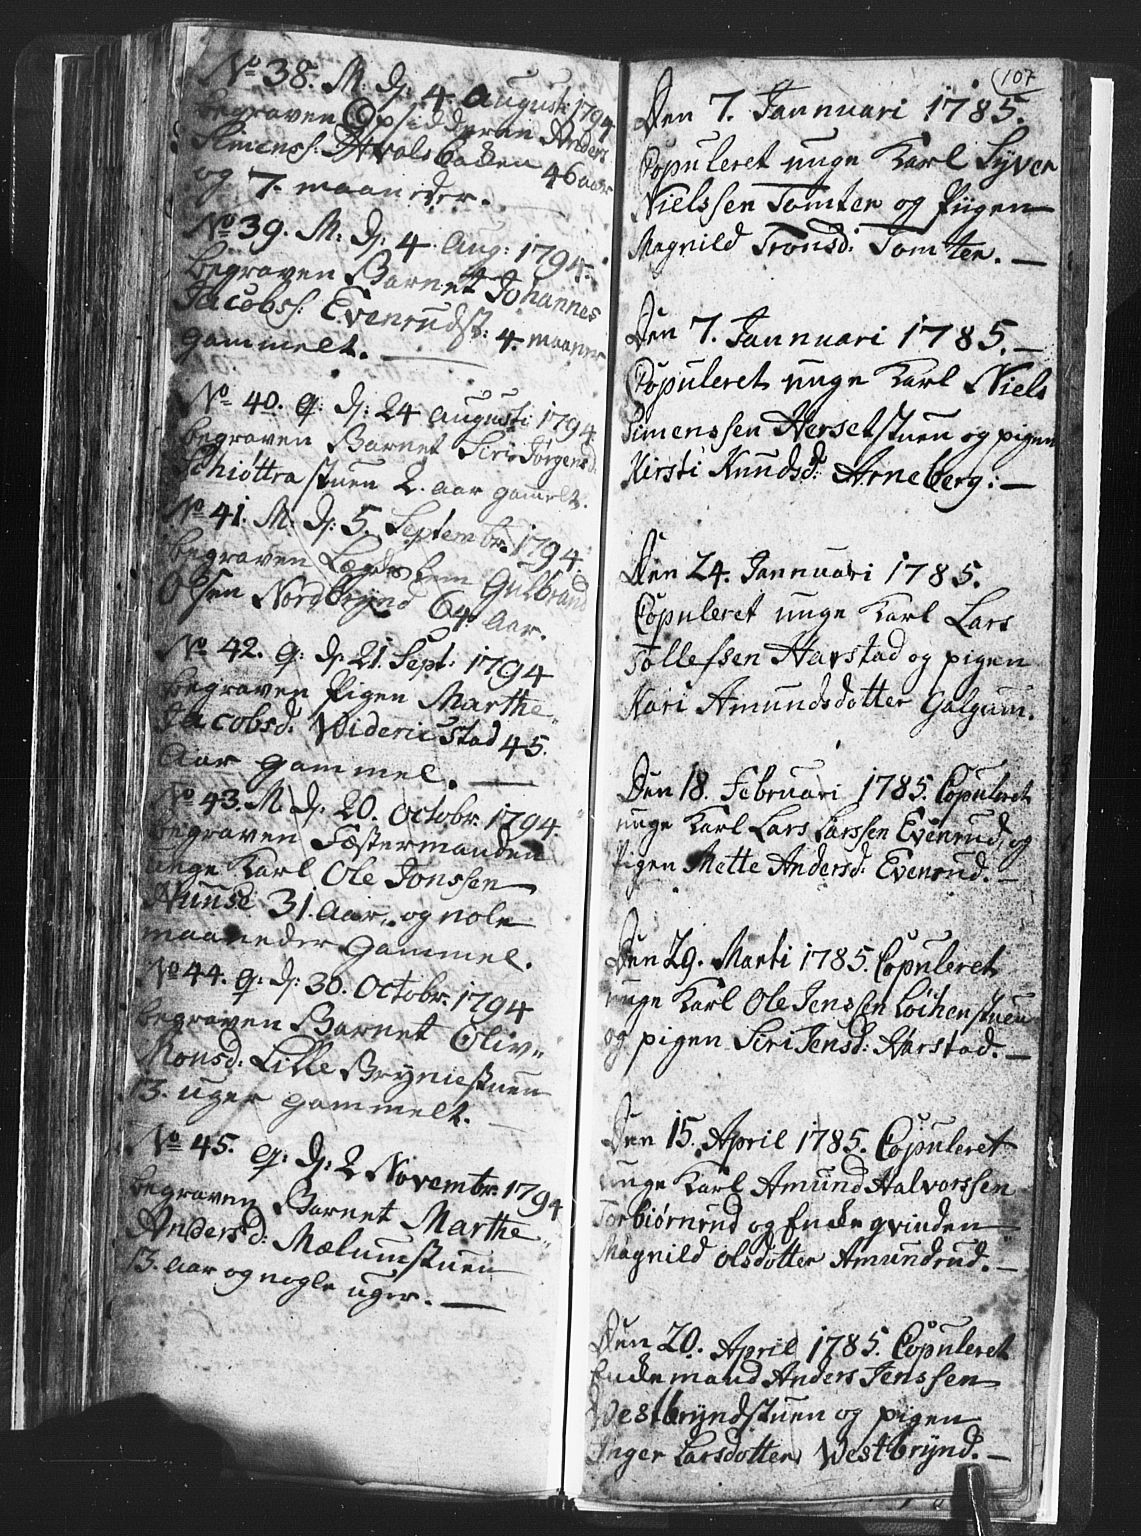 No 38. M: D: 4 Augusti 1794
begraven Opsidderen Anders
Simenss: Hvalsbakken 46 aar
og 7. maaneder.
No 39. M: D: 4 Aug: 1794.
begraven Barnet Johannes
Jacobss: Evenrudst: 4. maaner
gammelt.
No 40. Q: D: 24 Augusti 1794
begraven Barnet Siri Jørgensd:
Schiøttrastuen 2. aar gamelt.
No 41. M: D: 5. Septembr: 1794.
begraven Lægdslem Gulbrand
Olsen Nordbrynd 64 Aar.
No 42. Q: D: 21. Sept: 1794
begraven Pigen Marthe
Jacobsd: Widericstad 45.
Aar gammel.
No 43. M: D: 20. Octobr: 1794.
begraven Fæstermanden
unge Karl Ole Jonssen
Nuuse 31. Aar, og nole
maaneder gammel.
No 44. Q: D: 30. Octobr: 1794
begraven Barnet Oliv
Monsd: Lille Bryniestuen
13. uger gammelt.
No 45. Q: D: 2 Novembr: 1794
begraven Barnet Marthe
Andersd: Mælumstuen
13. Aar og nogle uger.
107
Den 7. Jannuari 1785.
Copuleret unge Karl Syver
Nielssen Tomten og Piigen
Magnild Tronsd: Tomten.
Den 7. Jannuari 1785.
Copuleret unge Karl Niels
Simenssen Hersetstuen og pigen
Kirsti Knudsd: Arneberg:
Den 24. Jannuari 1785.
Copuleret unge Karl Lars
Tollefsen Harstad og pigen
Kari Amundsdotter Galgum.
Den 18. Februari 1785. Copuleret
unge Karl Lars Larssen Evenrud, og
Pigen Mette Andersd: Evenrud.
Den 29. Marti 1785. Copuleret
unge Karl Ole Jenssen Löchenstuen
og pigen Siri Jensd: Harstad.
Den 15. April 1785. Copuleret
unge Karl Amund Halvorssen
Torbiørnrud og Enkeqvinden
Magnild Olsdotter Amundrud.
Den 20. April 1785. Copuleret
Enkemand Anders Jenssen
Westbryndstuen og pigen
Inger Larsdotter Westbrynd.